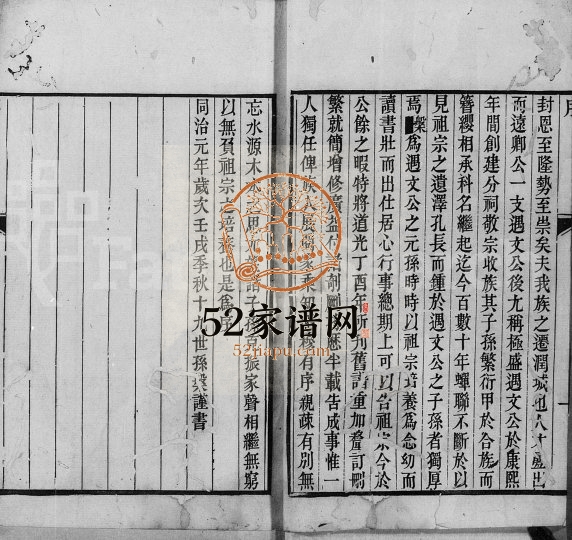 序
封恩至隆勢至崇矣夫我族之遷潤城也人才蔚出
而遠卿公一支遇文公後尤稱極盛遇文公於康熙
年間創建分祠敬宗收族其子孫繁衍甲於合族而
簪纓相承科名繼起迄今百數十年蟬聯不斷於以
見祖宗之遺澤孔長而鍾於遇文公之子孫者獨厚
焉 為遇文公之元孫時時以祖宗培養為念幼而
讀書壯而出仕居心行事總期上可以告祖宗今於
公餘之暇特將道光丁酉年所刊舊譜重加釐訂刪
繁就簡增修 益付 剞劂 歷半載告成事惟一
人獨任俾族人展 家乘知 有序親疎有別無
忘水源木本之思尤 子孫克振家聲相繼無窮
以無負祖宗之培養也是為序
同治元年歲次壬戌季秋十九世孫 謹書
52家谱网
52jiapu.com